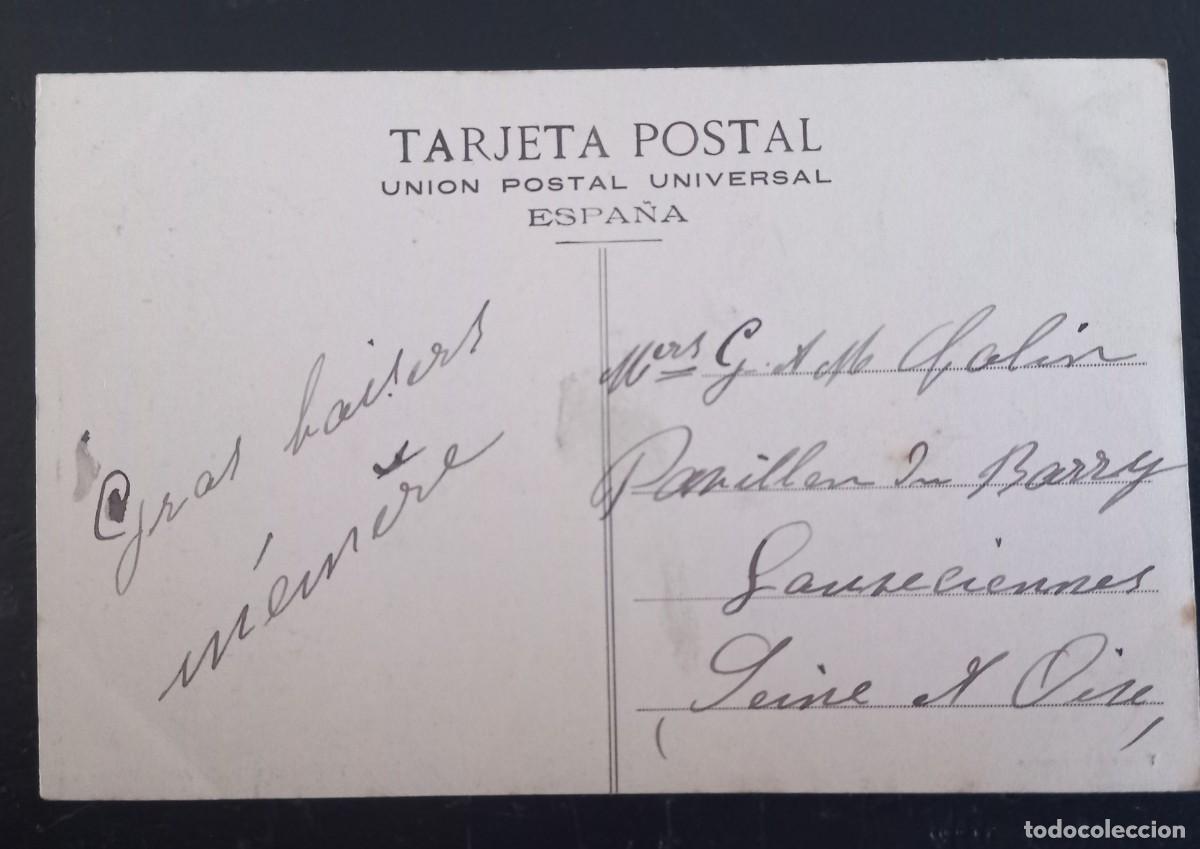 TARJETA POSTAL
UNION POSTAL UNIVERSAL
ESPAÑA
Gros baisers
mémère
Mers G. & M Colin
Pavillon Du Barry
Louveciennes
(Seine & Oise)
todocoleccion